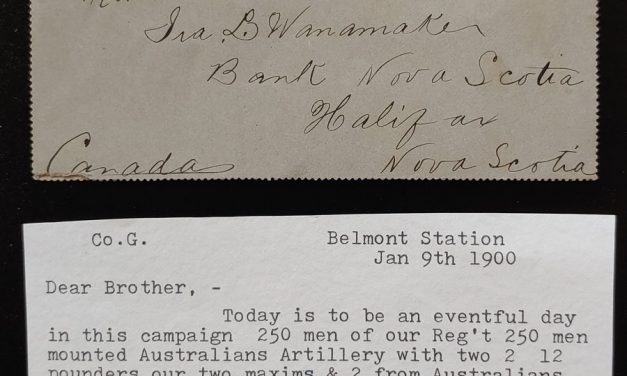 Ira B Wanamaker
Bank Nova Scotia
Halifax
Canada Nova Scotia
Co.G. Belmont Station
Jan 9th 1900
Dear Brother, -
Today is to be an eventful day
in this campaign 250 men of our Reg't 250 men
mounted Australians Artillery with two 2 12
pounders our two maxims & 2 from Australians